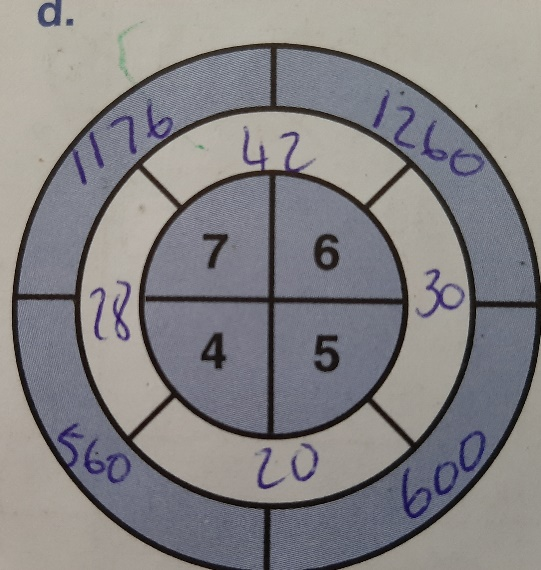 d.
1176
1260
42
7
6
28
30
4
5
560
20
600